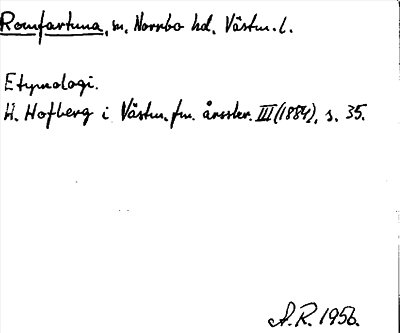 Romfartuna, sn. Norrbo hd. Västm. l.
Etymologi.
H. Hofberg i Västm. fm. årsskr. III (1884), s. 35.
A.R. 1956.